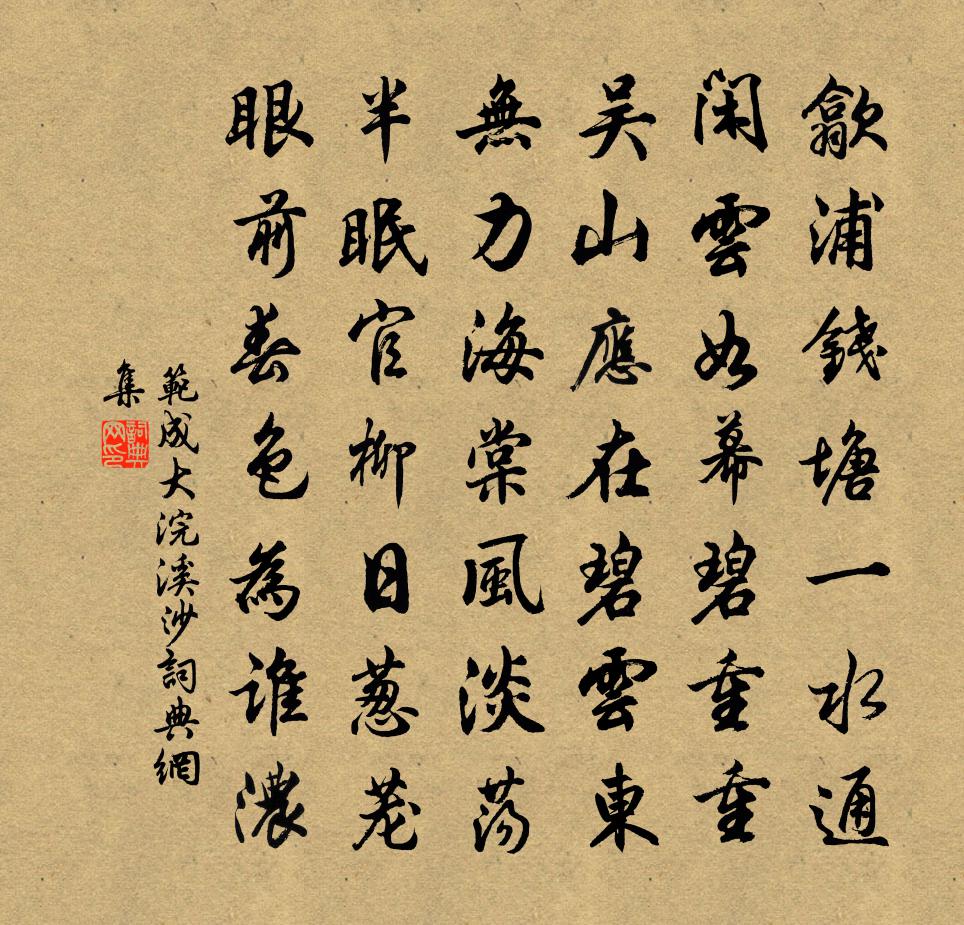 歙浦錢塘一水通
閑雲如幕碧重重
吴山應在碧雲東
無力海棠風淡蕩
半眠官柳日葱蘢
眼前春色為誰濃
範成大浣溪沙詞典網
集
詞典網印